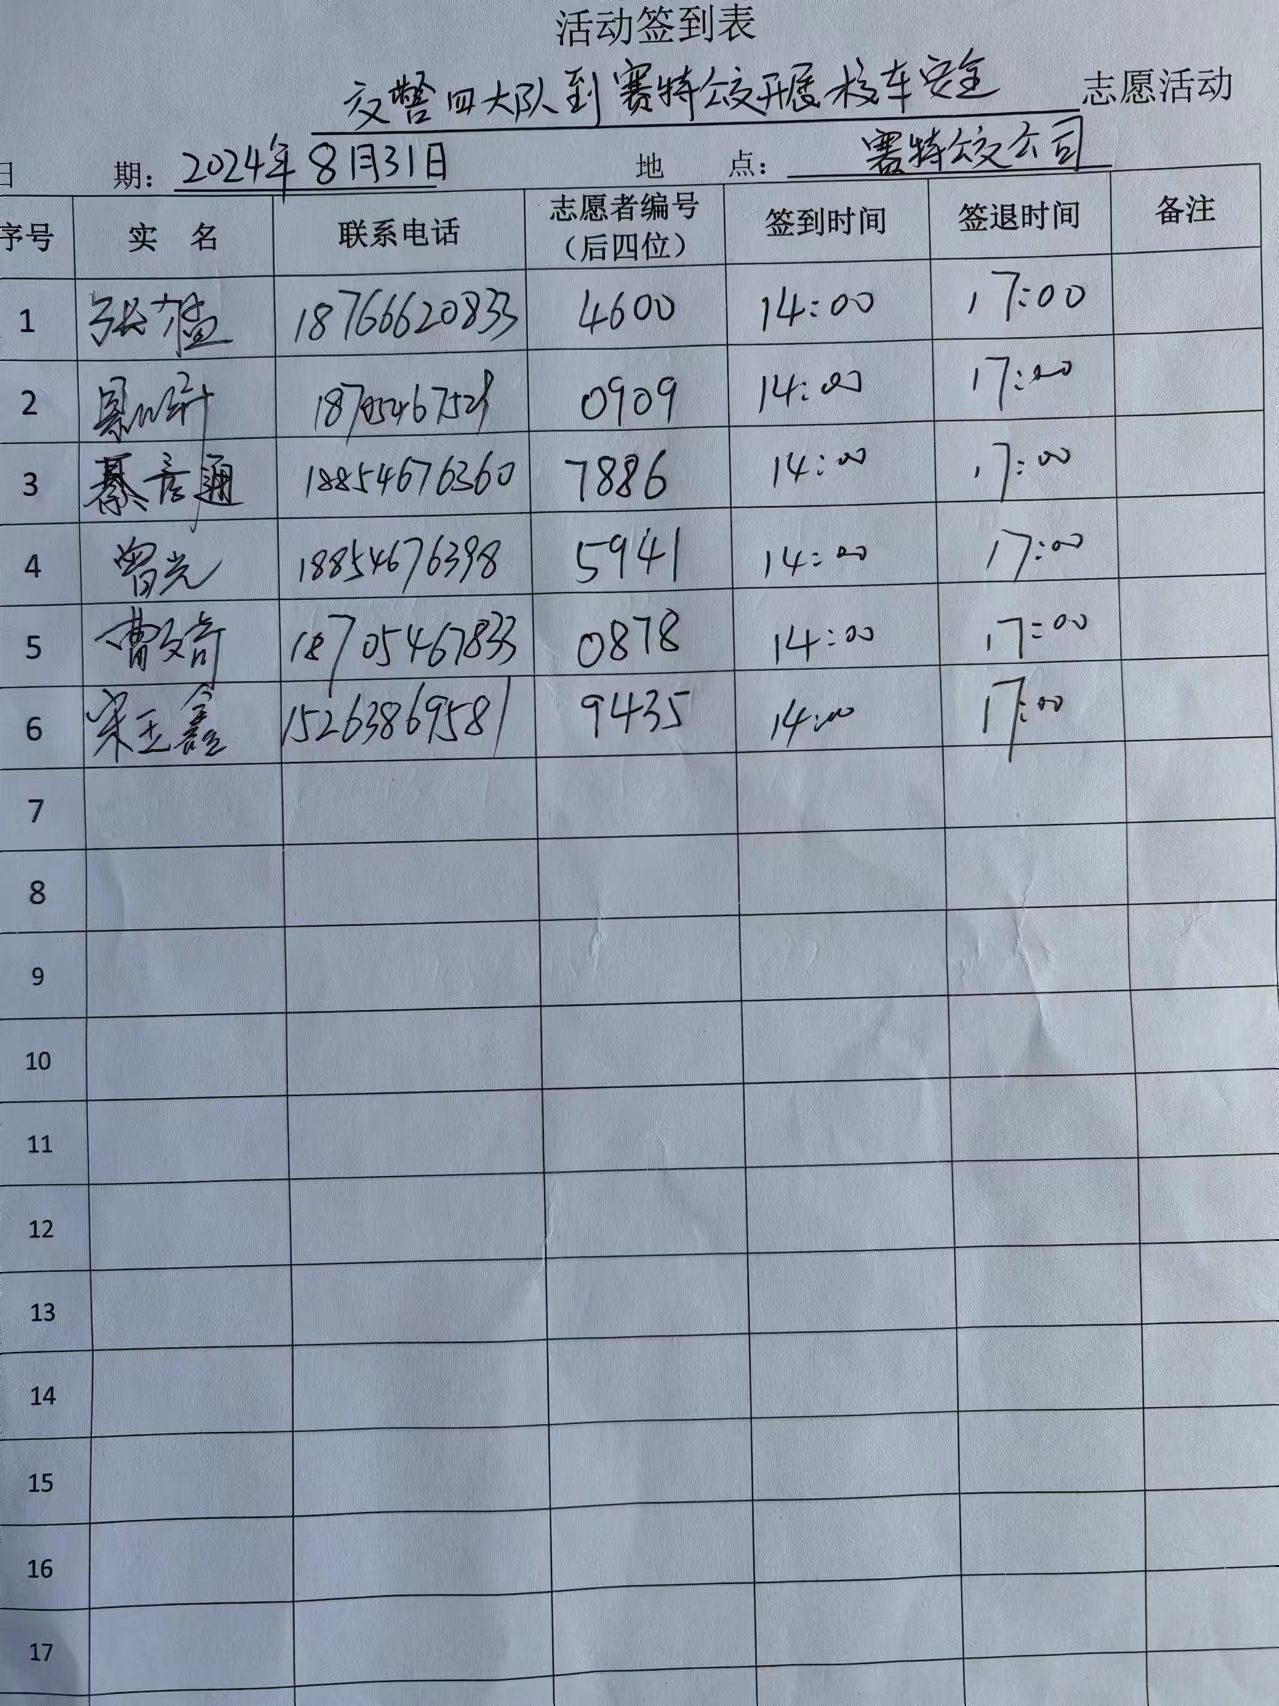 活动签到表
交警四大队到赛特公交开展校车安全 志愿活动
日 期：2024年8月31日 地 点：赛特公交公司
序号 实 名 联系电话 志愿者编号（后四位） 签到时间 签退时间 备注
1 18766620833 4600 14:00 17:00
2 0909 14:00 17:00
3 綦言通 18854676360 7886 14:00 17:00
4 曾光 18854676398 5941 14:00 17:00
5 曹文奇 18705467833 0878 14:00 17:00
6 宋玉鑫 15263869581 9435 14:00 17:00
7
8
9
10
11
12
13
14
15
16
17